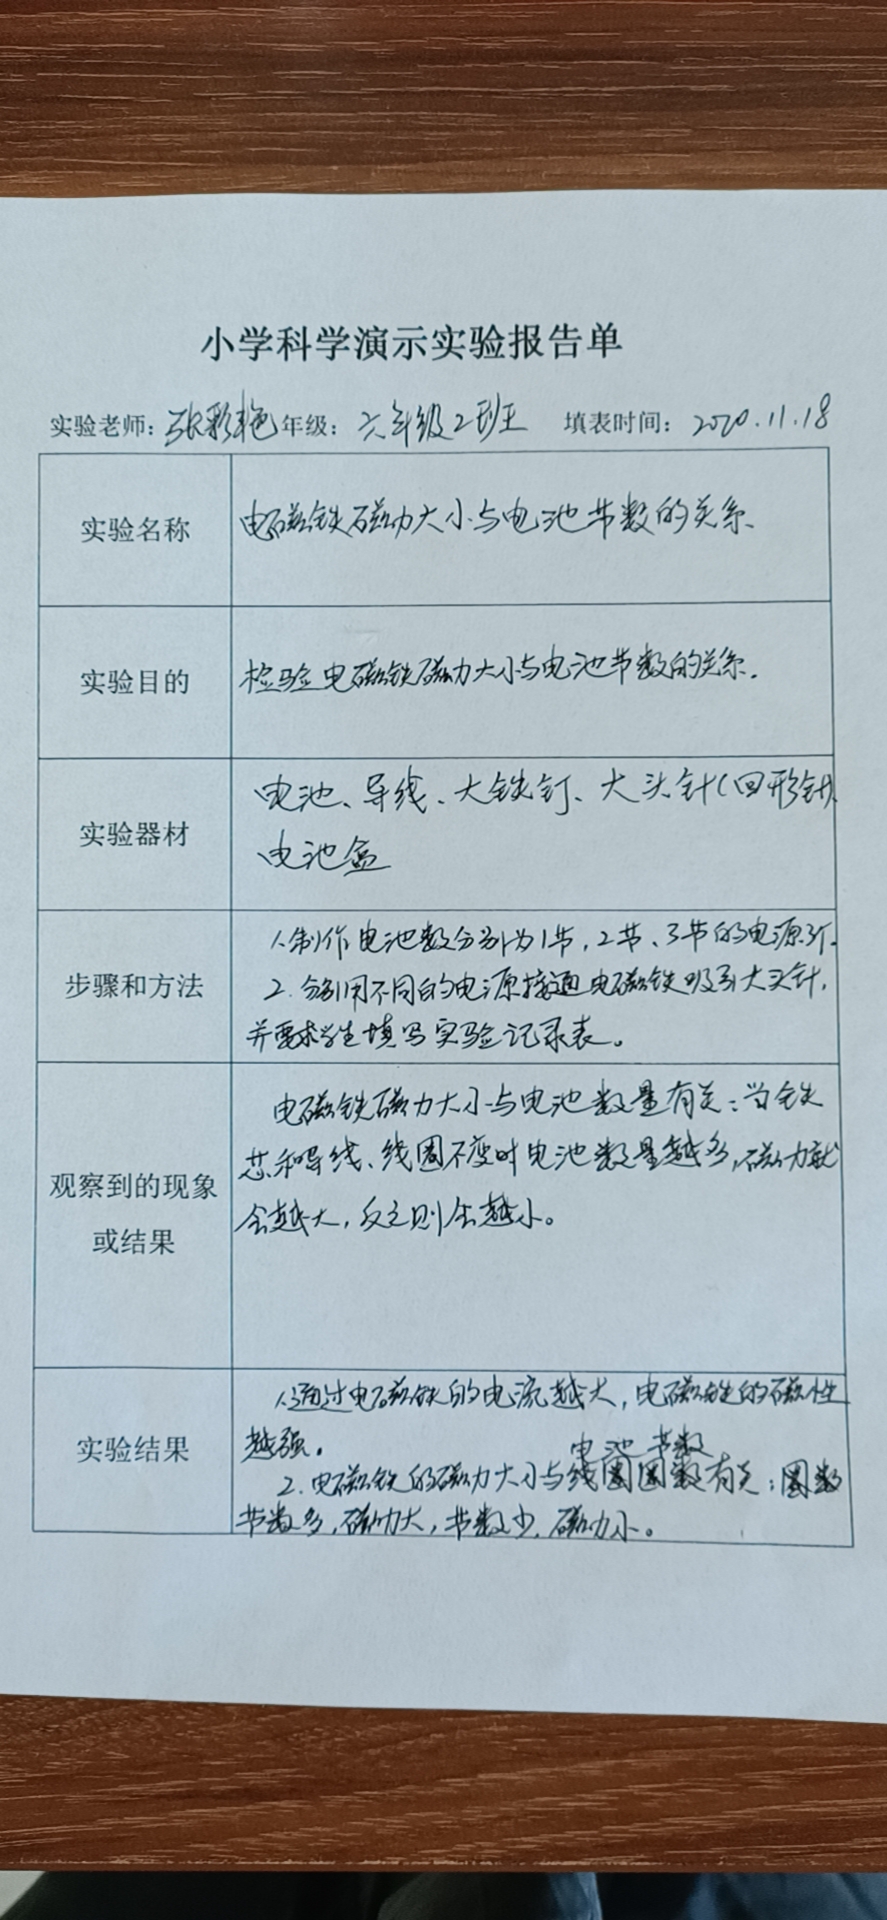 小学科学演示实验报告单
实验老师：张彩艳 年级：六年级2班 填表时间：2020.11.18
实验名称
电磁铁磁力大小与电池节数的关系.
实验目的
检验电磁铁磁力大小与电池节数的关系.
实验器材
电池、导线、大铁钉、大头针(回形针)、
电池盒
步骤和方法
1.制作电池数分别为1节，2节、3节的电源
2.分别用不同的电源接通电磁铁吸引大头针，
并要求学生填写实验记录表。
观察到的现象
或结果
电磁铁磁力大小与电池数量有关：当铁
芯和导线、线圈不变时电池数量越多，磁力就
会越大，反之则会越小。
实验结果
1.通过电磁铁的电流越大，电磁铁的磁性
越强。
电池节数
2.电磁铁的磁力大小与线圈圈数有关：圈数
节数多，磁力大，节数少，磁力小。